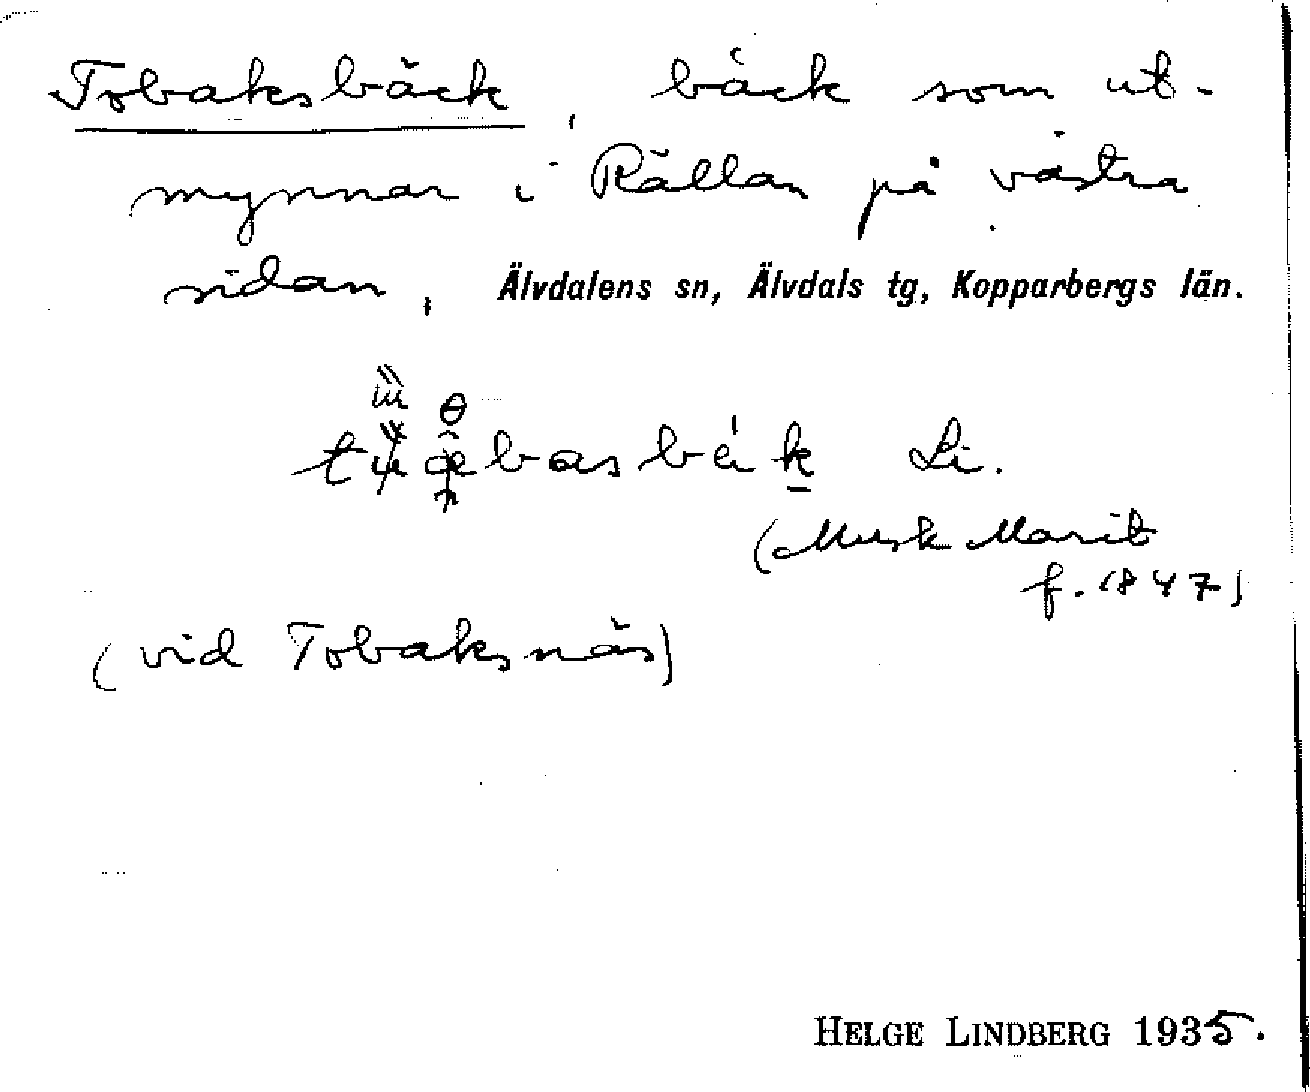 Tobaksbäck, bäck som ut-
mynnar i Rällan på västra
sidan, Älvdalens sn, Älvdals tg, Kopparbergs län.
Li.
(Musk Marit
f. 1847)
(vid Tobaksnäs)
HELGE LINDBERG 1935.